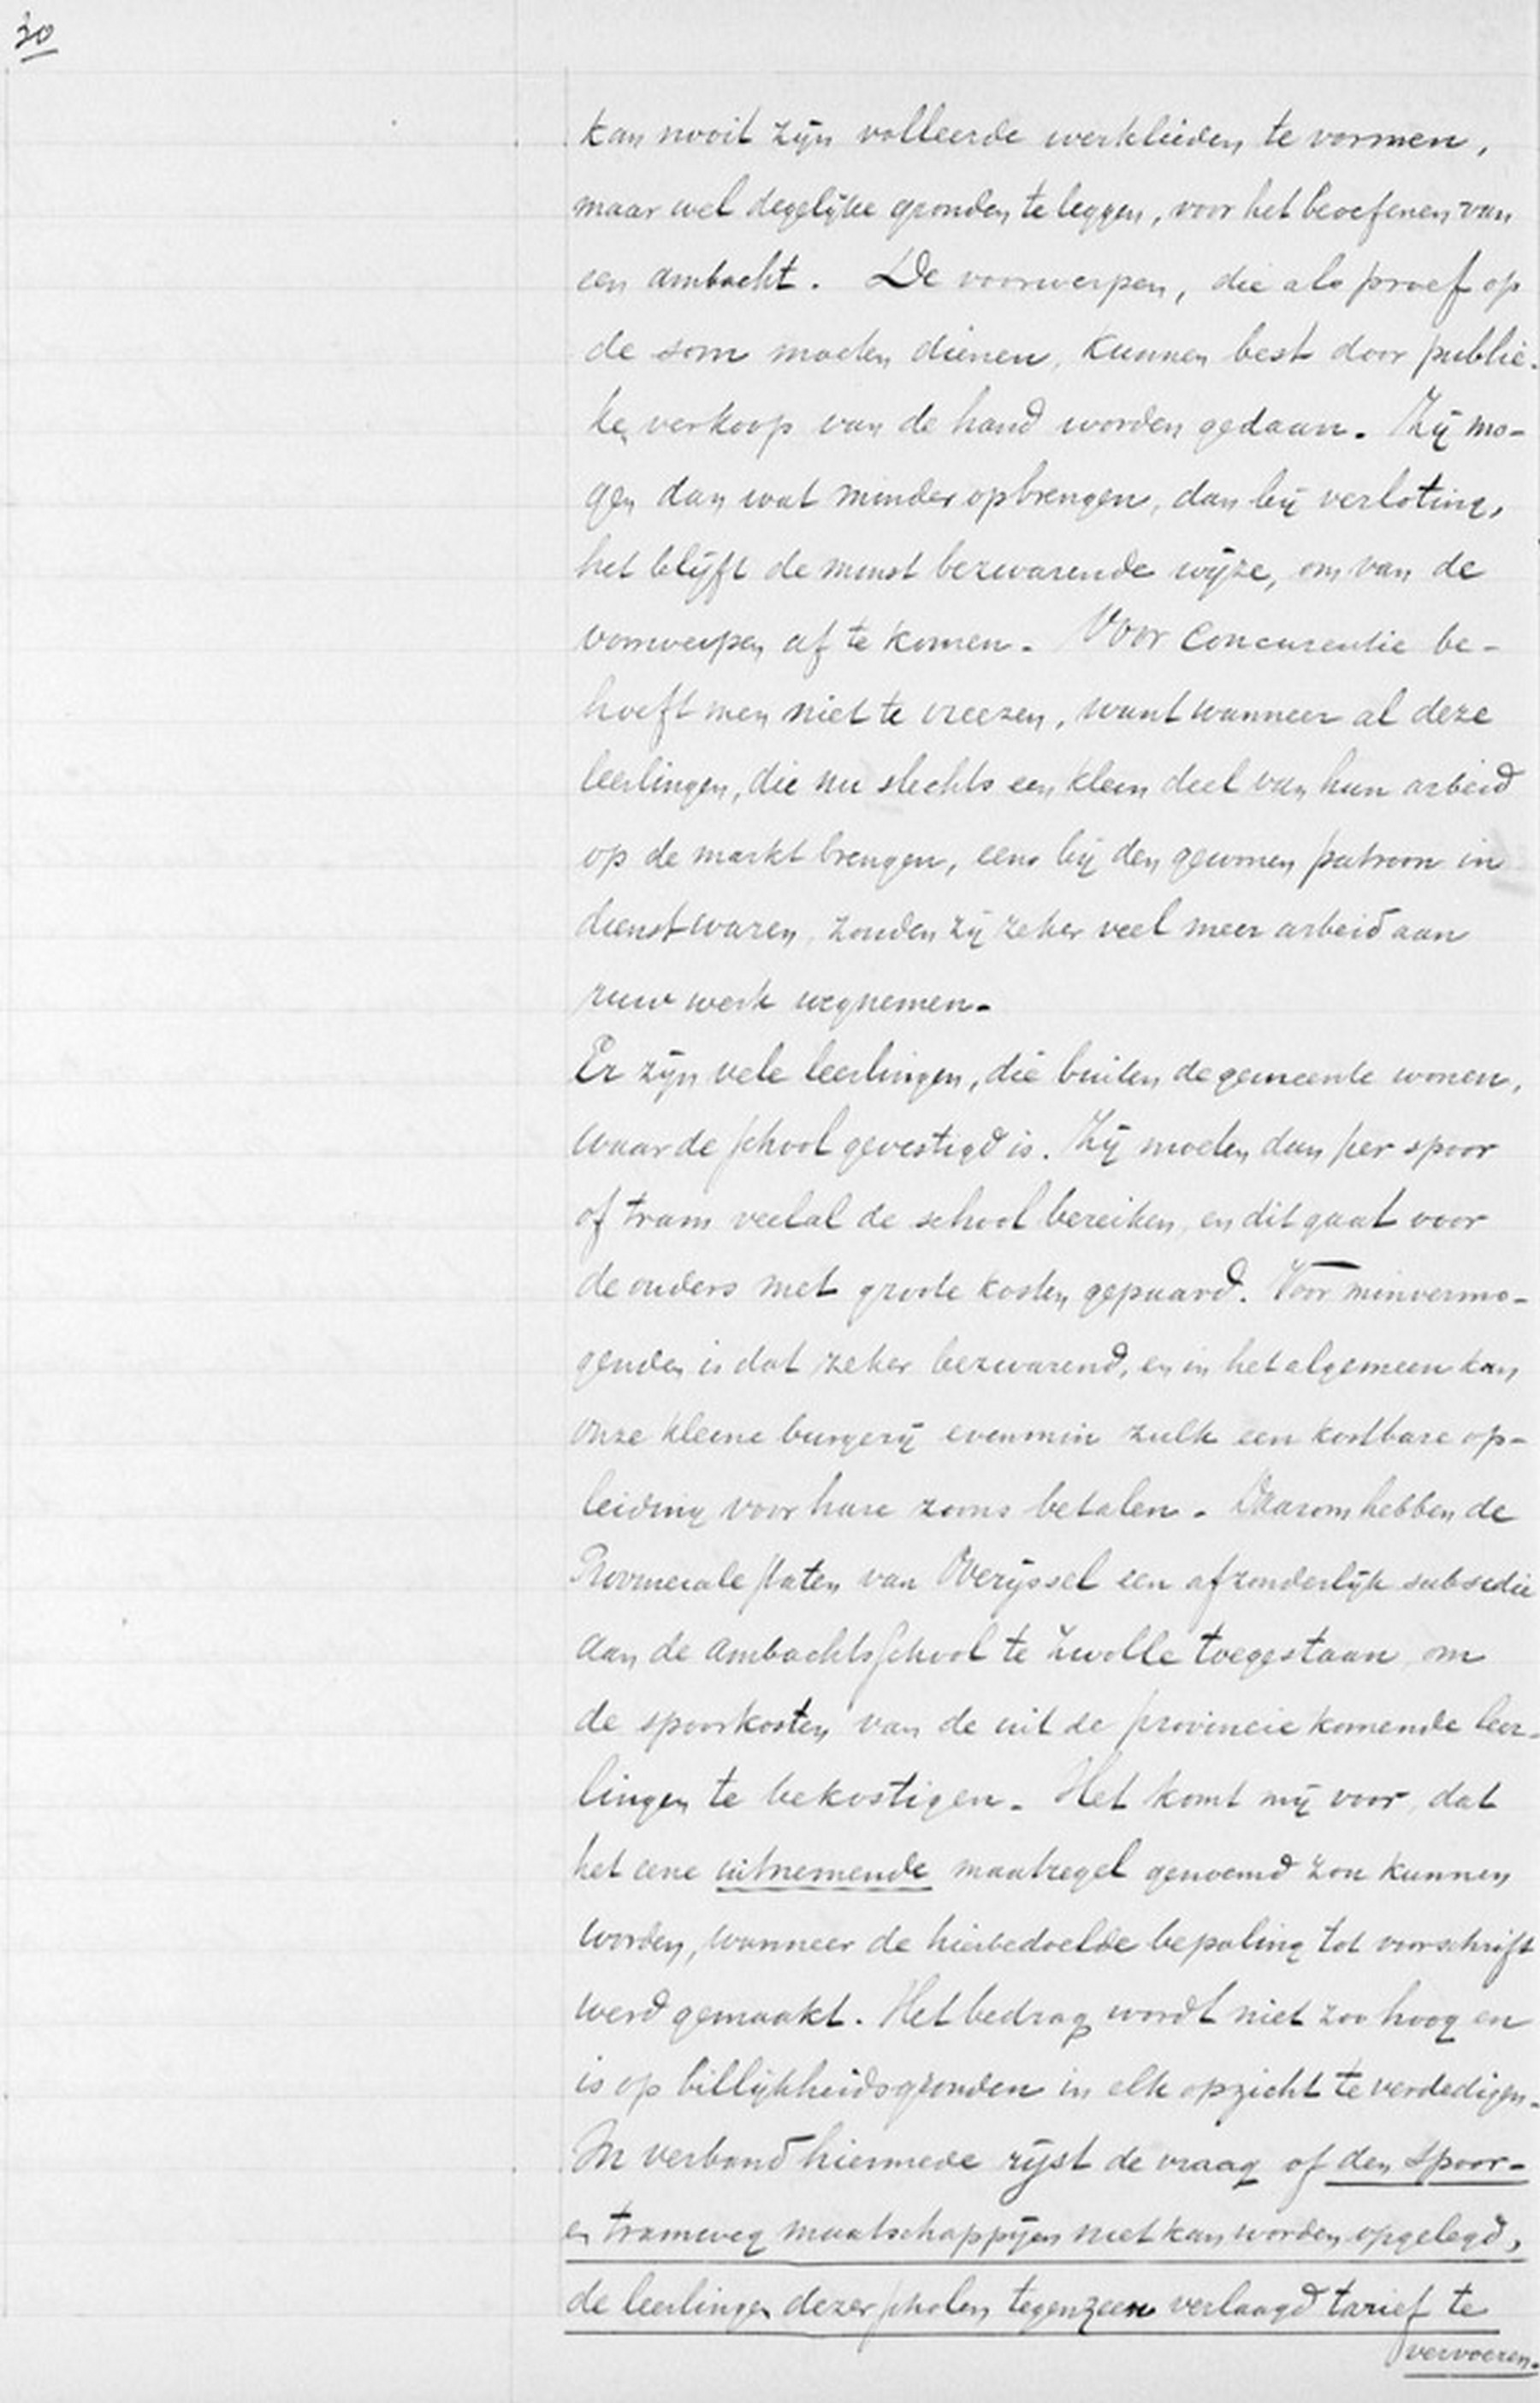 30
kan nooit zijn volleerde werklieden te vormen,
maar wel degelijke gronden te leggen, voor het beoefenen van
een ambacht. De voorwerpen, die als proef op
de som moeten dienen, kunnen best door publie-
ke verkoop van de hand worden gedaan. Zij mo-
gen dan wat minder opbrengen, dan bij verloting,
het blijft de minst bezwarende wijze, om van de
voorwerpen af te komen. Voor concurentie be-
hoeft men niet te vreezen, want wanneer al deze
leerlingen, die nu slechts een klein deel van hun arbeid
op de markt brengen, eens bij den gewonen patroon in
dienst waren, zouden zij zeker veel meer arbeid aan
ruw werk wegnemen.
Er zijn vele leerlingen, die buiten de gemeente wonen,
waar de school gevestigd is. Zij moeten dan per spoor
of tram veelal de school bereiken, en dit gaat voor
de ouders met groote kosten gepaard. Voor minvermo-
genden is dat zeker bezwarend, en in het algemeen kan
onze kleine burgerij evenmin zulk een kostbare op-
leiding voor hare zoons betalen. Daarom hebben de
Provinciale staten van Overijssel een afzonderlijk subsidie
aan de ambachtsschool te Zwolle toegestaan om
de spoorkosten van de uit de provincie komende leer-
lingen te bekostigen. Het komt mij voor, dat
het eene uitnemende maatregel genoemd zou kunnen
worden, wanneer de hierbedoelde bepaling tot voorschrift
werd gemaakt. Het bedrag wordt niet zoo hoog en
is op billijkheidsgronden in elk opzicht te verdedigen.
In verband hiermede rijst de vraag of den spoor-
en tramweg maatschappijen niet kan worden opgelegd,
de leerlingen dezer scholen tegen een verlaagd tarief te
vervoeren.